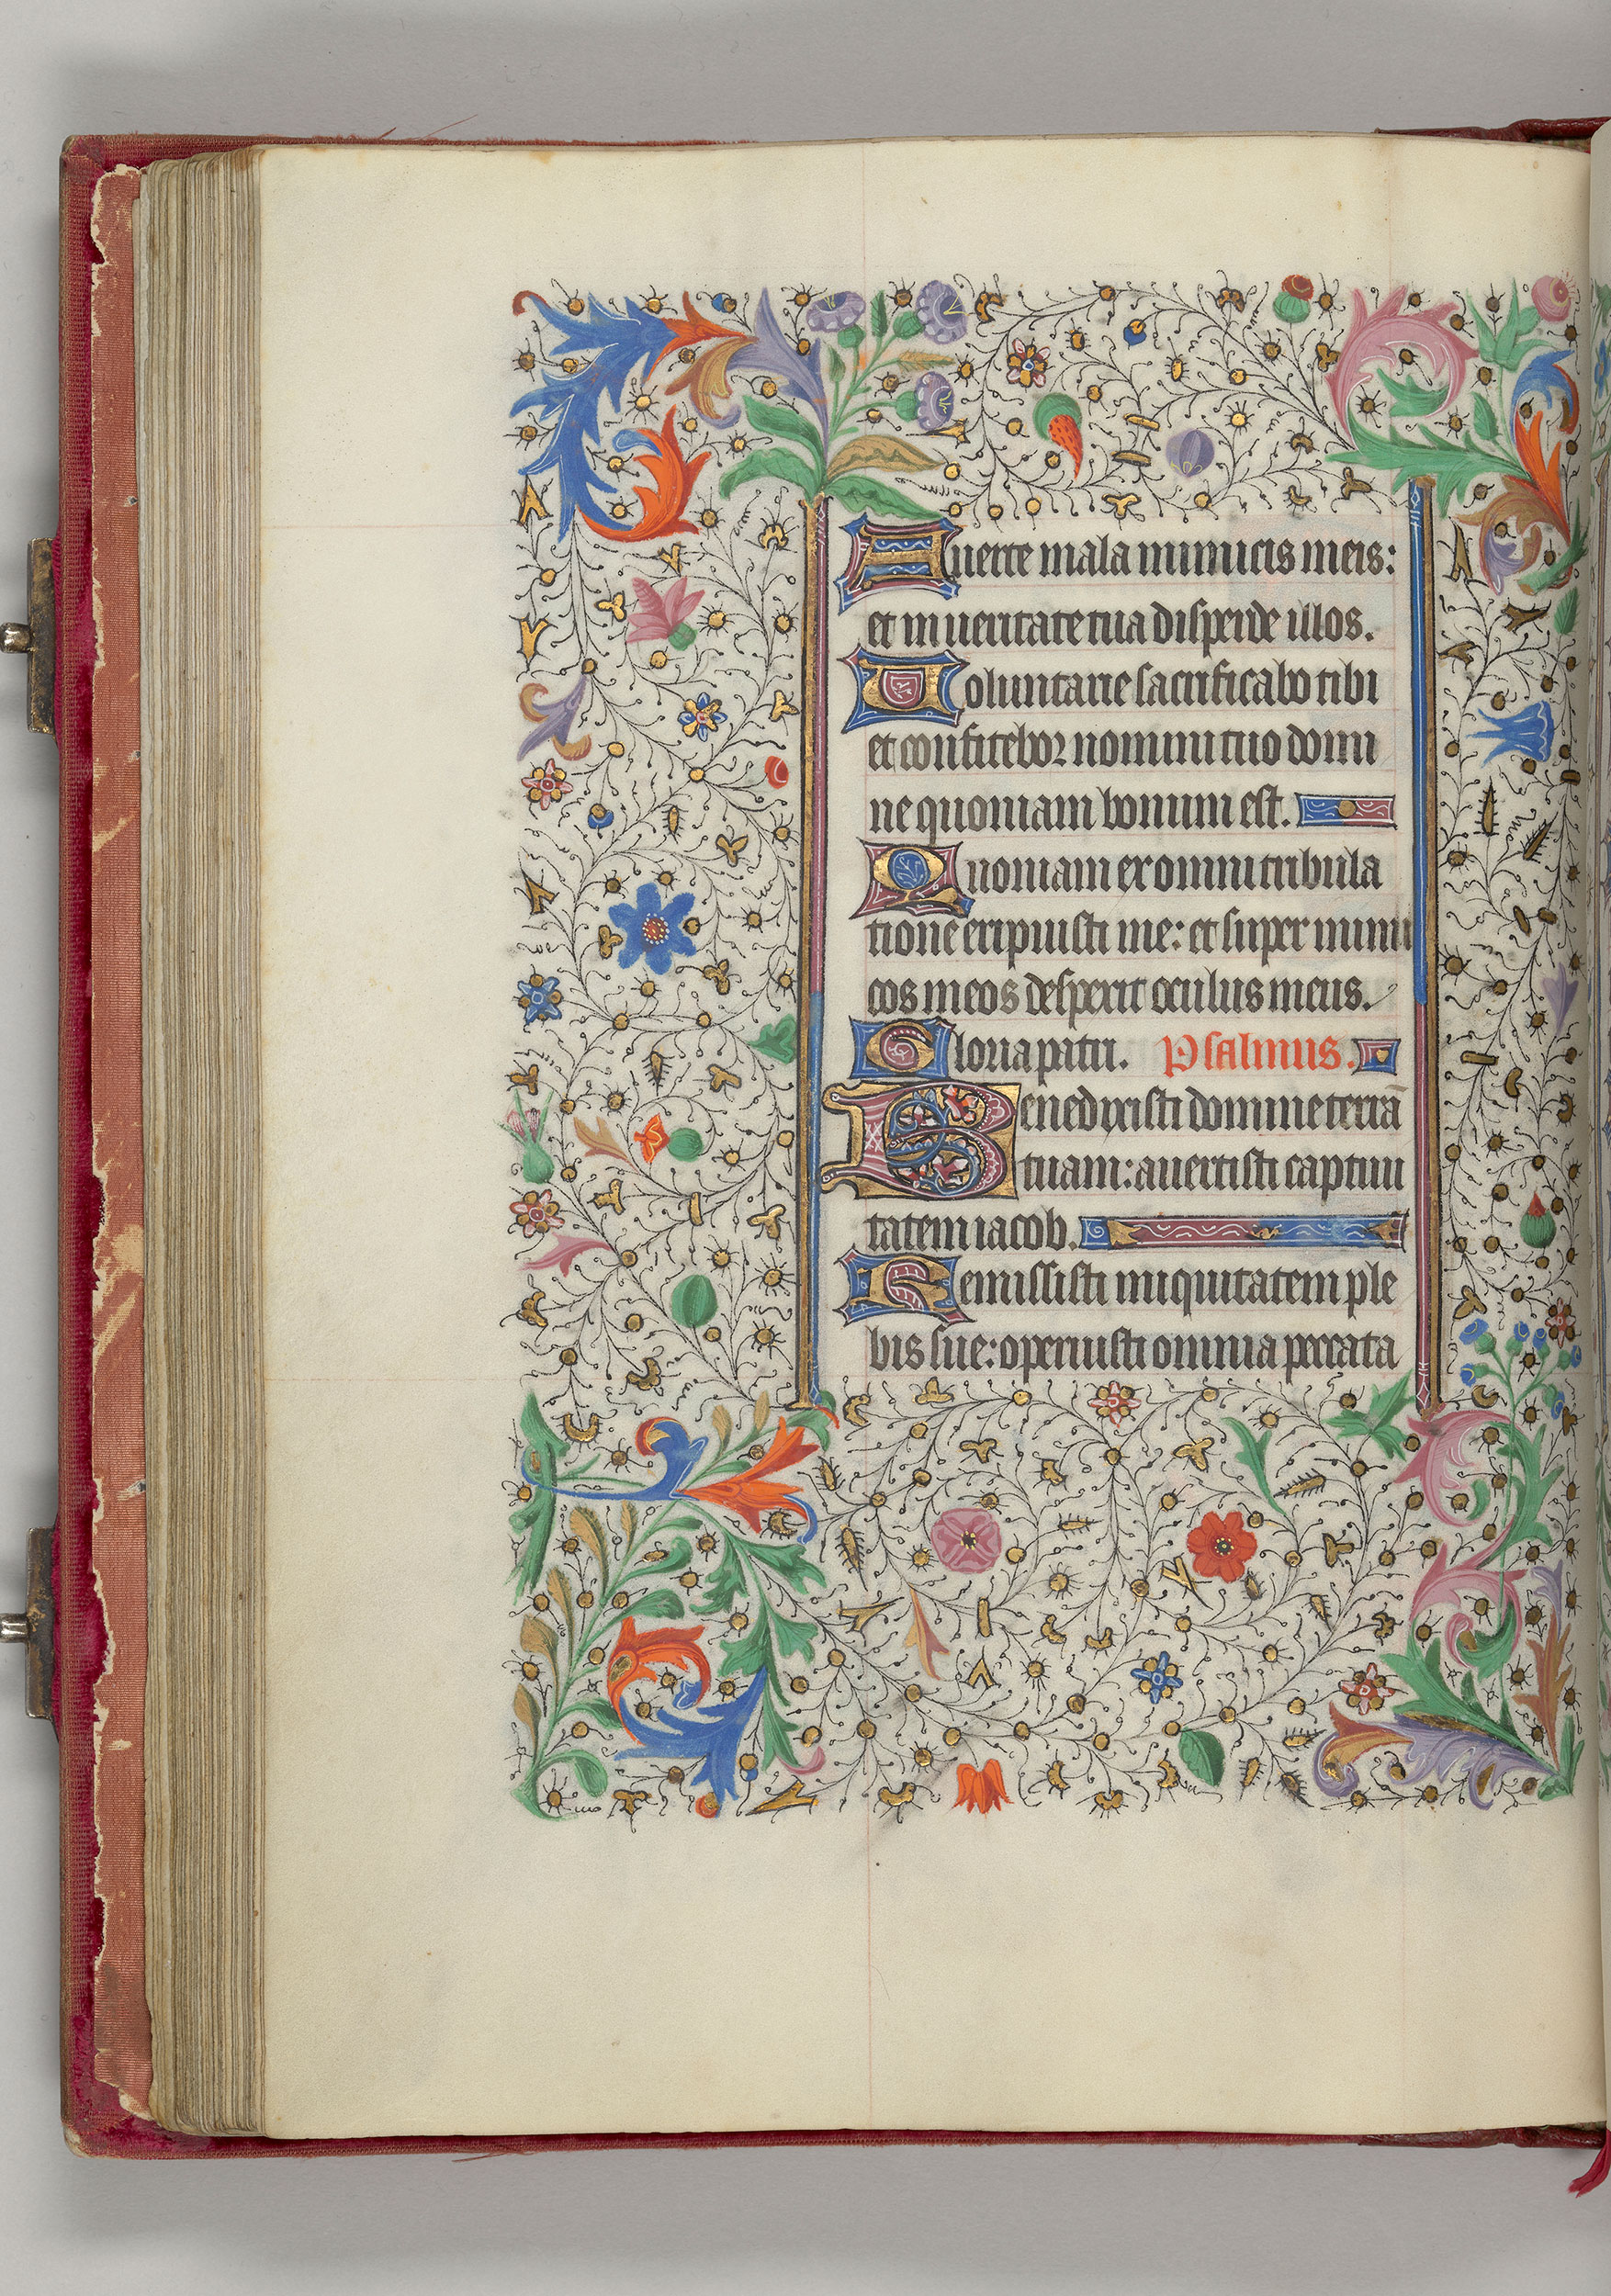 Auerte mala inimicis meis:
et in ueritate tua disperde illos.
Uoluntarie sacrificabo tibi
et confitebor nomini tuo domi
ne quoniam bonum est.
Quoniam ex omni tribula
tione eripuisti me: et super inimi
cos meos desperit oculus meus.
Gloria patri. Psalmus.
Benedixisti domine terrā
tuam: auertisti captiui
tatem iacob.
Remissisti iniquitatem ple
bis sue: operuisti omnia peccata